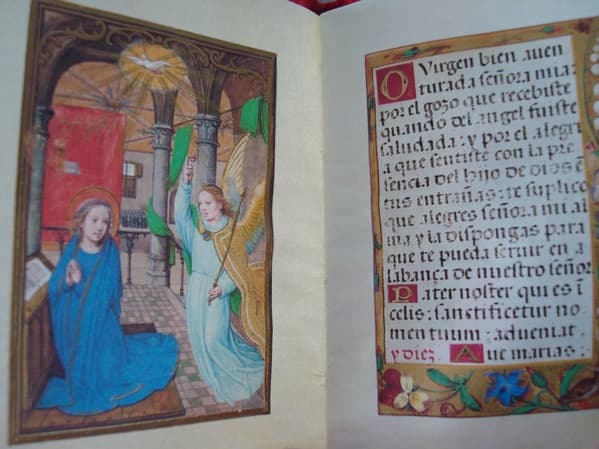 O Virgen bien auen
turada señora mia:
por el gozo que recebiste
quando del angel fuiste
saludada: y por el alegri
a que sentiste con la pre
sencia del hijo de dios en
tus entrañas: te suplico
que alegres señora mi al
ma y la dispongas para
que te pueda seruir en a
labança de nuestro señor.
Pater noster qui es i
celis: santificetur no
men tuum: adueniat
y diez Aue marias: